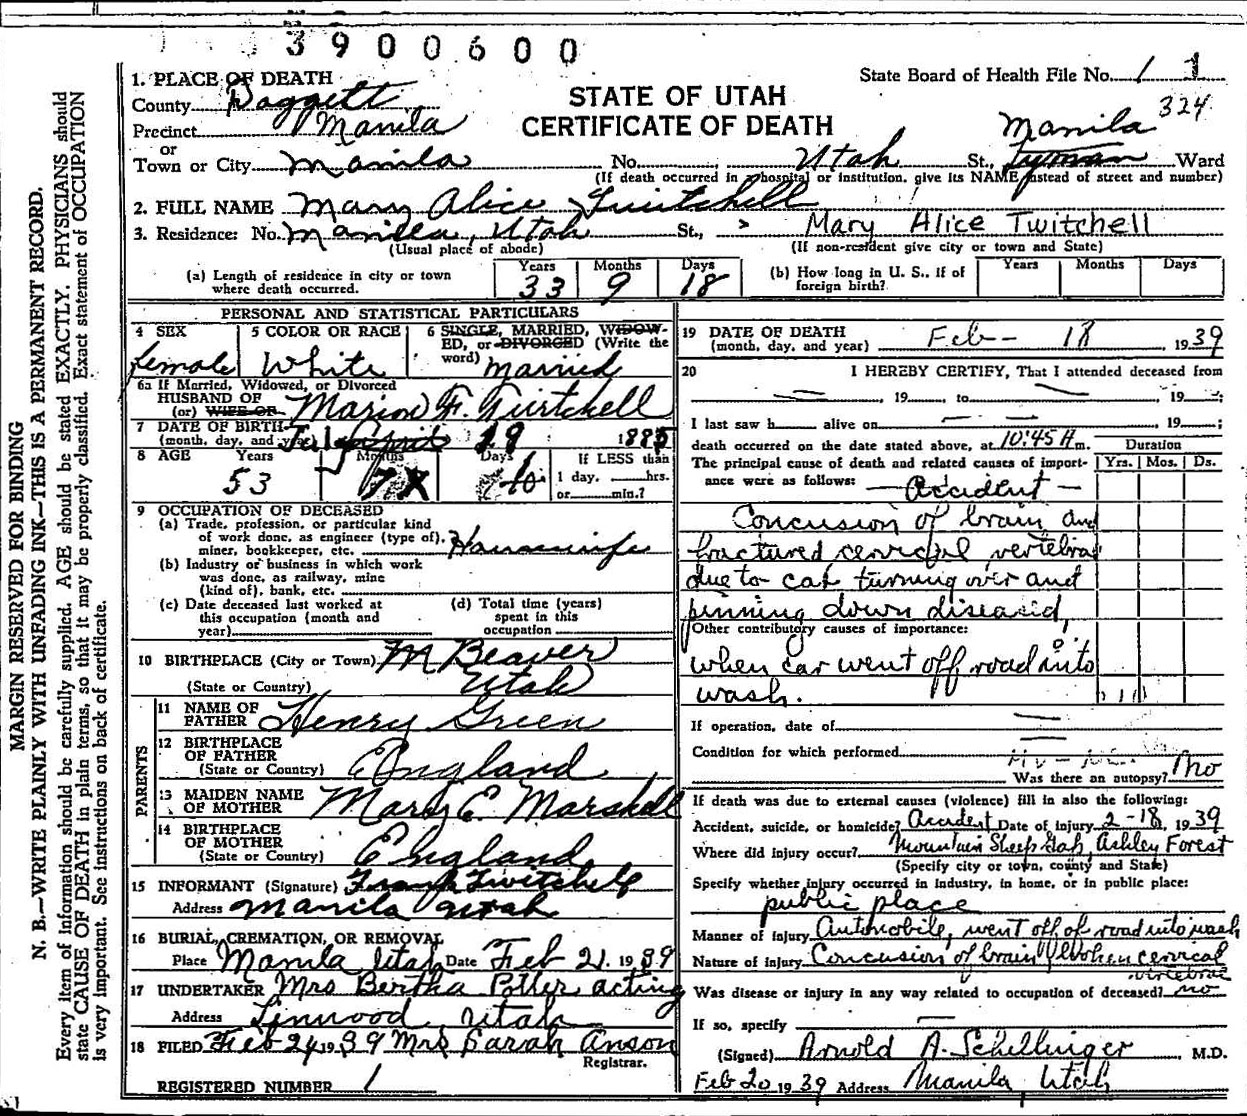 3900600
State Board of Health File No. 1 1
324
STATE OF UTAH
CERTIFICATE OF DEATH
1. PLACE OF DEATH
County Daggett
Precinct Manila
or
Town or City Manila No. Utah St., Manila Ward
(If death occurred in a hospital or institution, give its NAME instead of street and number)
2. FULL NAME Mary Alice Twitchell
3. Residence: No. Manila, Utah St., Mary Alice Twitchell
(Usual place of abode) (If non-resident give city or town and State)
(a) Length of residence in city or town where death occurred. Years 33 Months 9 Days 18
(b) How long in U. S., if of foreign birth? Years Months Days
MARGIN RESERVED FOR BINDING
N. B.—WRITE PLAINLY WITH UNFADING INK—THIS IS A PERMANENT RECORD.
Every item of information should be carefully supplied. AGE should be stated EXACTLY. PHYSICIANS should
state CAUSE OF DEATH in plain terms, so that it may be properly classified. Exact statement of OCCUPATION
is very important. See instructions on back of certificate.
PERSONAL AND STATISTICAL PARTICULARS
4 SEX female
5 COLOR OR RACE White
6 SINGLE, MARRIED, WIDOWED, or DIVORCED (Write the word) married
6a If Married, Widowed, or Divorced
HUSBAND OF
(or) WIFE OF Marion F. Twitchell
7 DATE OF BIRTH
(month, day, and year) 1885
8 AGE Years 53 Months 7 Days
If LESS than
1 day, hrs.
or min.?
9 OCCUPATION OF DECEASED
(a) Trade, profession, or particular kind
of work done, as engineer (type of),
miner, bookkeeper, etc. Housewife
(b) Industry or business in which work
was done, as railway, mine
(kind of), bank, etc.
(c) Date deceased last worked at
this occupation (month and
year)
(d) Total time (years)
spent in this
occupation
10 BIRTHPLACE (City or Town) Beaver
(State or Country) Utah
PARENTS
11 NAME OF
FATHER Henry Green
12 BIRTHPLACE
OF FATHER
(State or Country) England
13 MAIDEN NAME
OF MOTHER Mary E. Marshall
14 BIRTHPLACE
OF MOTHER
(State or Country) England
15 INFORMANT (Signature) Frank Twitchell
Address Manila Utah
16 BURIAL, CREMATION, OR REMOVAL
Place Manila Utah Date Feb 21. 1939
17 UNDERTAKER Mrs Bertha Potter acting
Address Linwood Utah
18 FILED Feb 24 1939 Mrs Sarah Anson
Registrar.
REGISTERED NUMBER 1
19 DATE OF DEATH
(month, day, and year) Feb - 18, 1939
20 I HEREBY CERTIFY, That I attended deceased from
, 19 , to , 19 ;
I last saw h alive on , 19 ;
death occurred on the date stated above, at 10:45 A m. Duration
The principal cause of death and related causes of importance were as follows: Yrs. Mos. Ds.
— Accident —
Concusion of brain and
fractured cervical vertebra
due to car turning over and
pinning down diseased
Other contributory causes of importance:
when car went off road into
wash.
If operation, date of
Condition for which performed
Was there an autopsy? No
If death was due to external causes (violence) fill in also the following:
Accident, suicide, or homicide? Accident Date of injury 2-18, 1939
Where did injury occur? Mountain Sheep Gap, Ashley Forest
(Specify city or town, county and State)
Specify whether injury occurred in industry, in home, or in public place:
public place
Manner of injury Automobile, went off of road into wash
Nature of injury Concusion of brain, broken cervical
vertebrae
Was disease or injury in any way related to occupation of deceased? no
If so, specify
(Signed) Arnold A. Schellinger M.D.
Feb 20 1939 Address Manila Utah